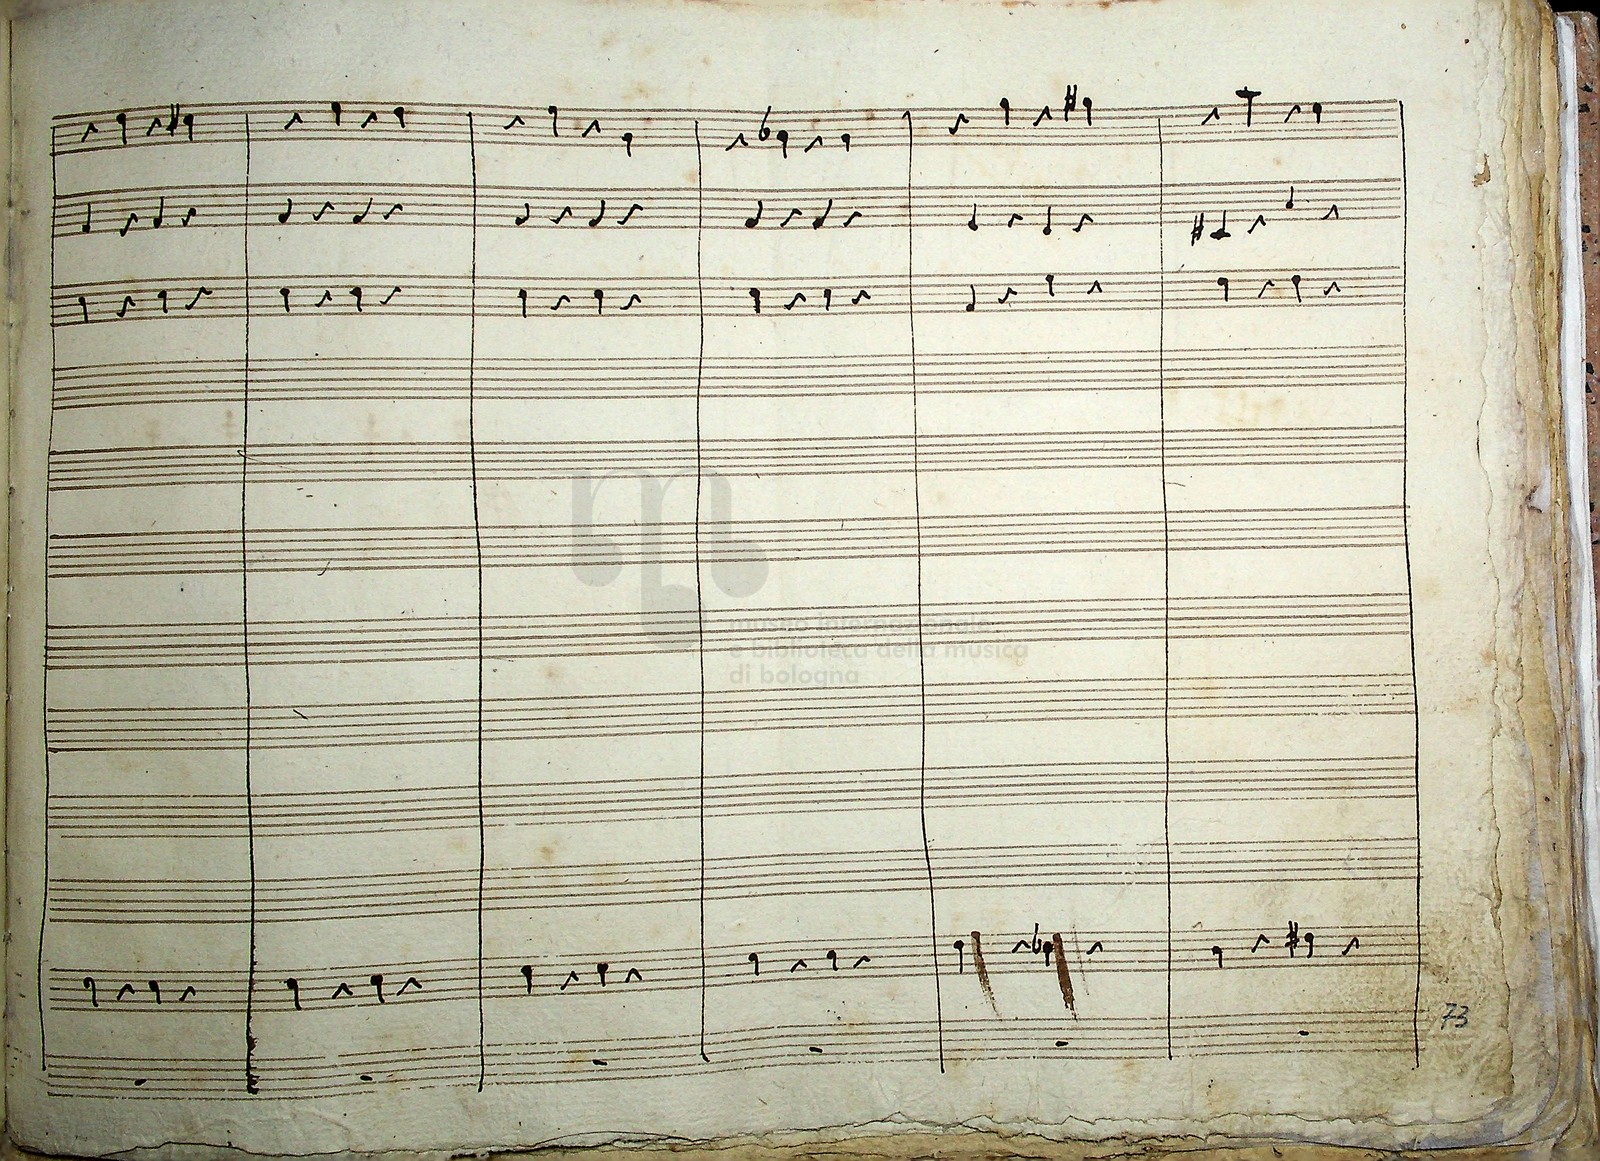 museo internazionale
e biblioteca della musica
di bologna
73